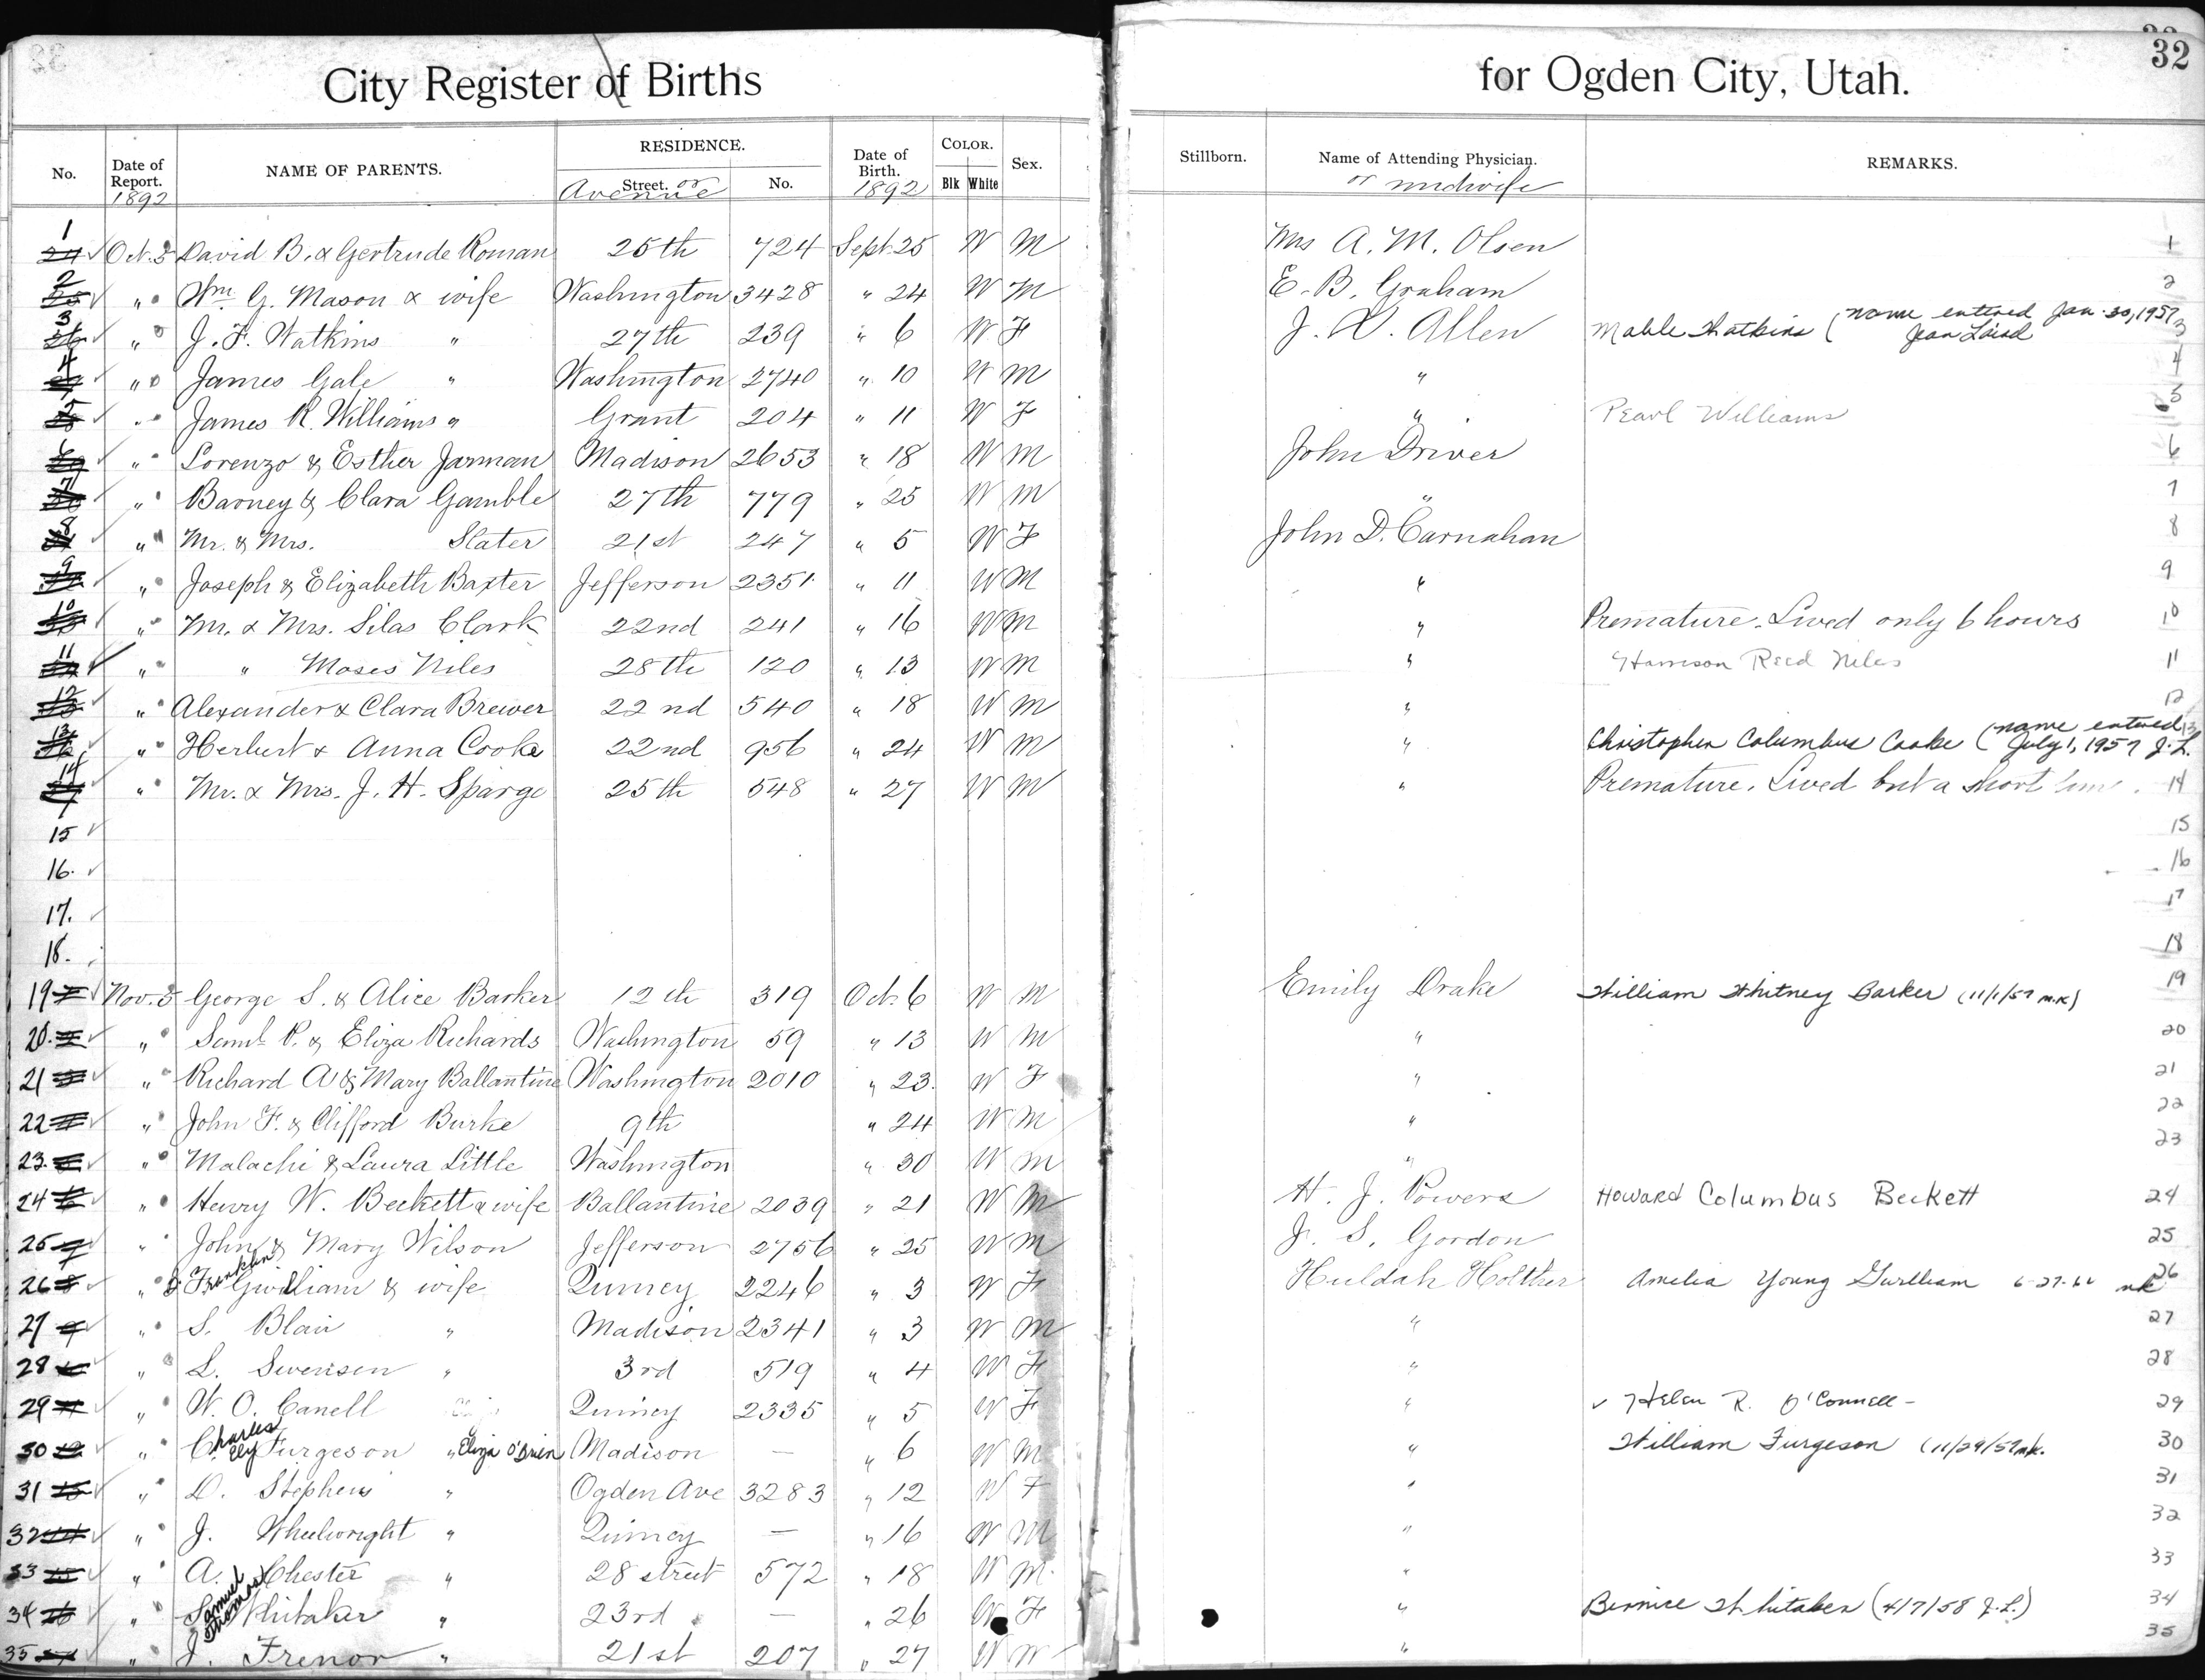 32
City Register of Births for Ogden City, Utah.
No. Date of Report. 1892 NAME OF PARENTS. RESIDENCE. Street. or Avenue No. Date of Birth. 1892 COLOR. Blk White Sex. Stillborn. Name of Attending Physician. or midwife REMARKS.
1 24 Oct. 5 David B. & Gertrude Roman 25th 724 Sept. 25 W M Mrs A. M. Olsen 1
2 25 " Wm. G. Mason & wife Washington 3428 " 24 W M E. B. Graham 2
3 26 " J. F. Watkins " 27th 239 " 6 W F J. X. Allen Mable Watkins (name entered Jan. 30, 1957 Jean Laird 3
4 27 " James Gale " Washington 2740 " 10 W M " 4
5 28 " James R. Williams " Grant 204 " 11 W F " Pearl Williams 5
6 29 " Lorenzo & Esther Jarman Madison 2653 " 18 W M John Driver 6
7 30 " Barney & Clara Gamble 27th 779 " 25 W M " 7
8 31 " Mr. & Mrs. Slater 21st 247 " 5 W F John D. Carnahan 8
9 32 " Joseph & Elizabeth Baxter Jefferson 2351 " 11 W M " 9
10 33 " Mr. & Mrs. Silas Clark 22nd 241 " 16 W M " Premature. Lived only 6 hours 10
11 34 " " Moses Niles 28th 120 " 13 W M " Harrison Reed Niles 11
12 35 " Alexander & Clara Brewer 22nd 540 " 18 W M " 12
13 36 " Herbert & Anna Cooke 22nd 956 " 24 W M " Christopher Columbus Cooke (name entered July 1, 1957 J.L. 13
14 37 " Mr. & Mrs. J. H. Spargo 25th 548 " 27 W M " Premature. Lived but a short time. 14
15 15
16. 16
17. 17
18. 18
19 Nov. 5 George S. & Alice Barker 12th 319 Oct. 6 W M Emily Drake William Whitney Barker (11/1/57 m.k) 19
20. " Saml. P. & Eliza Richards Washington 59 " 13 W M " 20
21 " Richard A & Mary Ballantine Washington 2010 " 23. W F " 21
22 " John F. & Clifford Burke 9th " 24 W M " 22
23. " Malachi & Laura Little Washington " 30 W M " 23
24 6 " Henry W. Beckett & wife Ballantine 2039 " 21 W M H. J. Powers Howard Columbus Beckett 24
25 7 " John & Mary Wilson Jefferson 2756 " 25 W M J. S. Gordon 25
26 8 " Franklin Gwilliam & wife Quincy 2246 " 3 W F Huldah Holther Amelia Young Gwilliam 6-27-60 mk 26
27 9 " S. Blair " Madison 2341 " 3 W M " 27
28 10 " L. Swensen " 3rd 519 " 4 W F " 28
29 11 " W. O. Canell Quincy 2335 " 5 W F " ✓ Helen R. O'Connell - 29
30 12 " Charles Ely Furgeson " Eliza O'Brien Madison — " 6 W M " William Furgeson (11/29/57 mk. 30
31 13 " D. Stephens " Ogden Ave 3283 " 12 W F " 31
32 14 " J. Wheelwright " Quincy — " 16 W M " 32
33 15 " A. Chester " 28 street 572 " 18 W M. " 33
34 16 " Samuel Thomas Whitaker " 23rd — " 26 W F " Bernice Whitaker (4/7/58 J.L.) 34
35 " J. Frenor " 21st 207 " 27 W M " 35